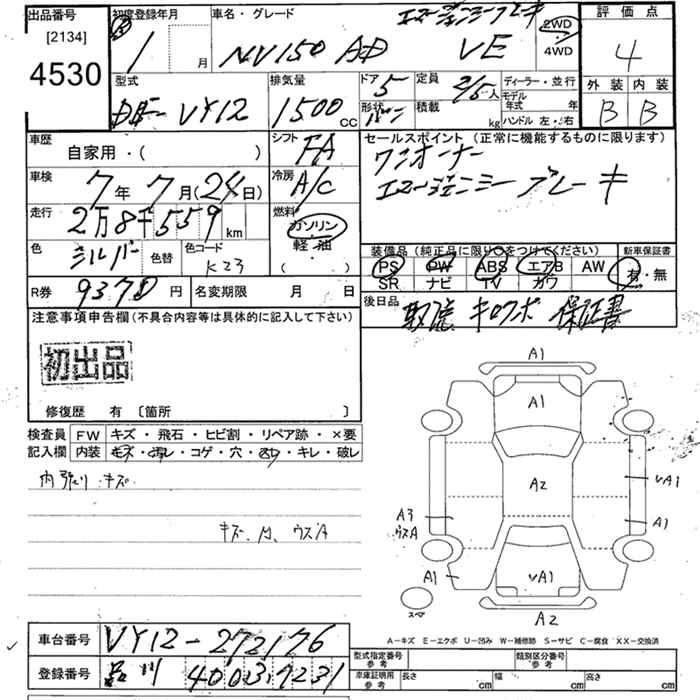 出品番号 初度登録年月 車名・グレード エマージェンシーブレーキ 2WD 評価点
[2134] 1 月 NV150 AD VE 4WD 4
4530
型式 排気量 ドア 5 定員 2/5人 ディーラー・並行 外装 内装
VY12 1500 CC 形状 バン 積載 kg モデル年式 年 B B
ハンドル 左・右
車歴 シフト FA セールスポイント (正常に機能するものに限ります)
自家用・( ) ワンオーナー
車検 7年7月(24日) 冷房 A/C エマージェンシーブレーキ
走行 2万8千559km 燃料 ガソリン 軽・油 ( )
色 シルバー 色替 色コード K23
装備品 (純正品に限り○をつけてください) 新車保証書
PS PW ABS エアB AW 有・無
SR ナビ TV カワ
R券 9370円 名変期限 月 日
後日品 取説 キロクボ 保証書
注意事項申告欄(不具合内容等は具体的に記入して下さい)
初出品
修復歴 有 〔箇所 〕
検査員 FW キズ・飛石・ヒビ割・リペア跡・×要
記入欄 内装 キズ・汚レ・コゲ・穴・凹・キレ・破レ
内張り キズ
A1
A1
A2
vA1
A3 ウスA
A1
A1
vA1
スペア
A2
A-キズ E-エクボ U-凹み W-補修跡 S-サビ C-腐食 XX-交換済
車台番号 VY12-272176
登録番号 品川 400 ろ 7231
型式指定番号 参考 類別区分番号 参考
車庫証明用 参考 長さ cm 幅 cm 高さ cm